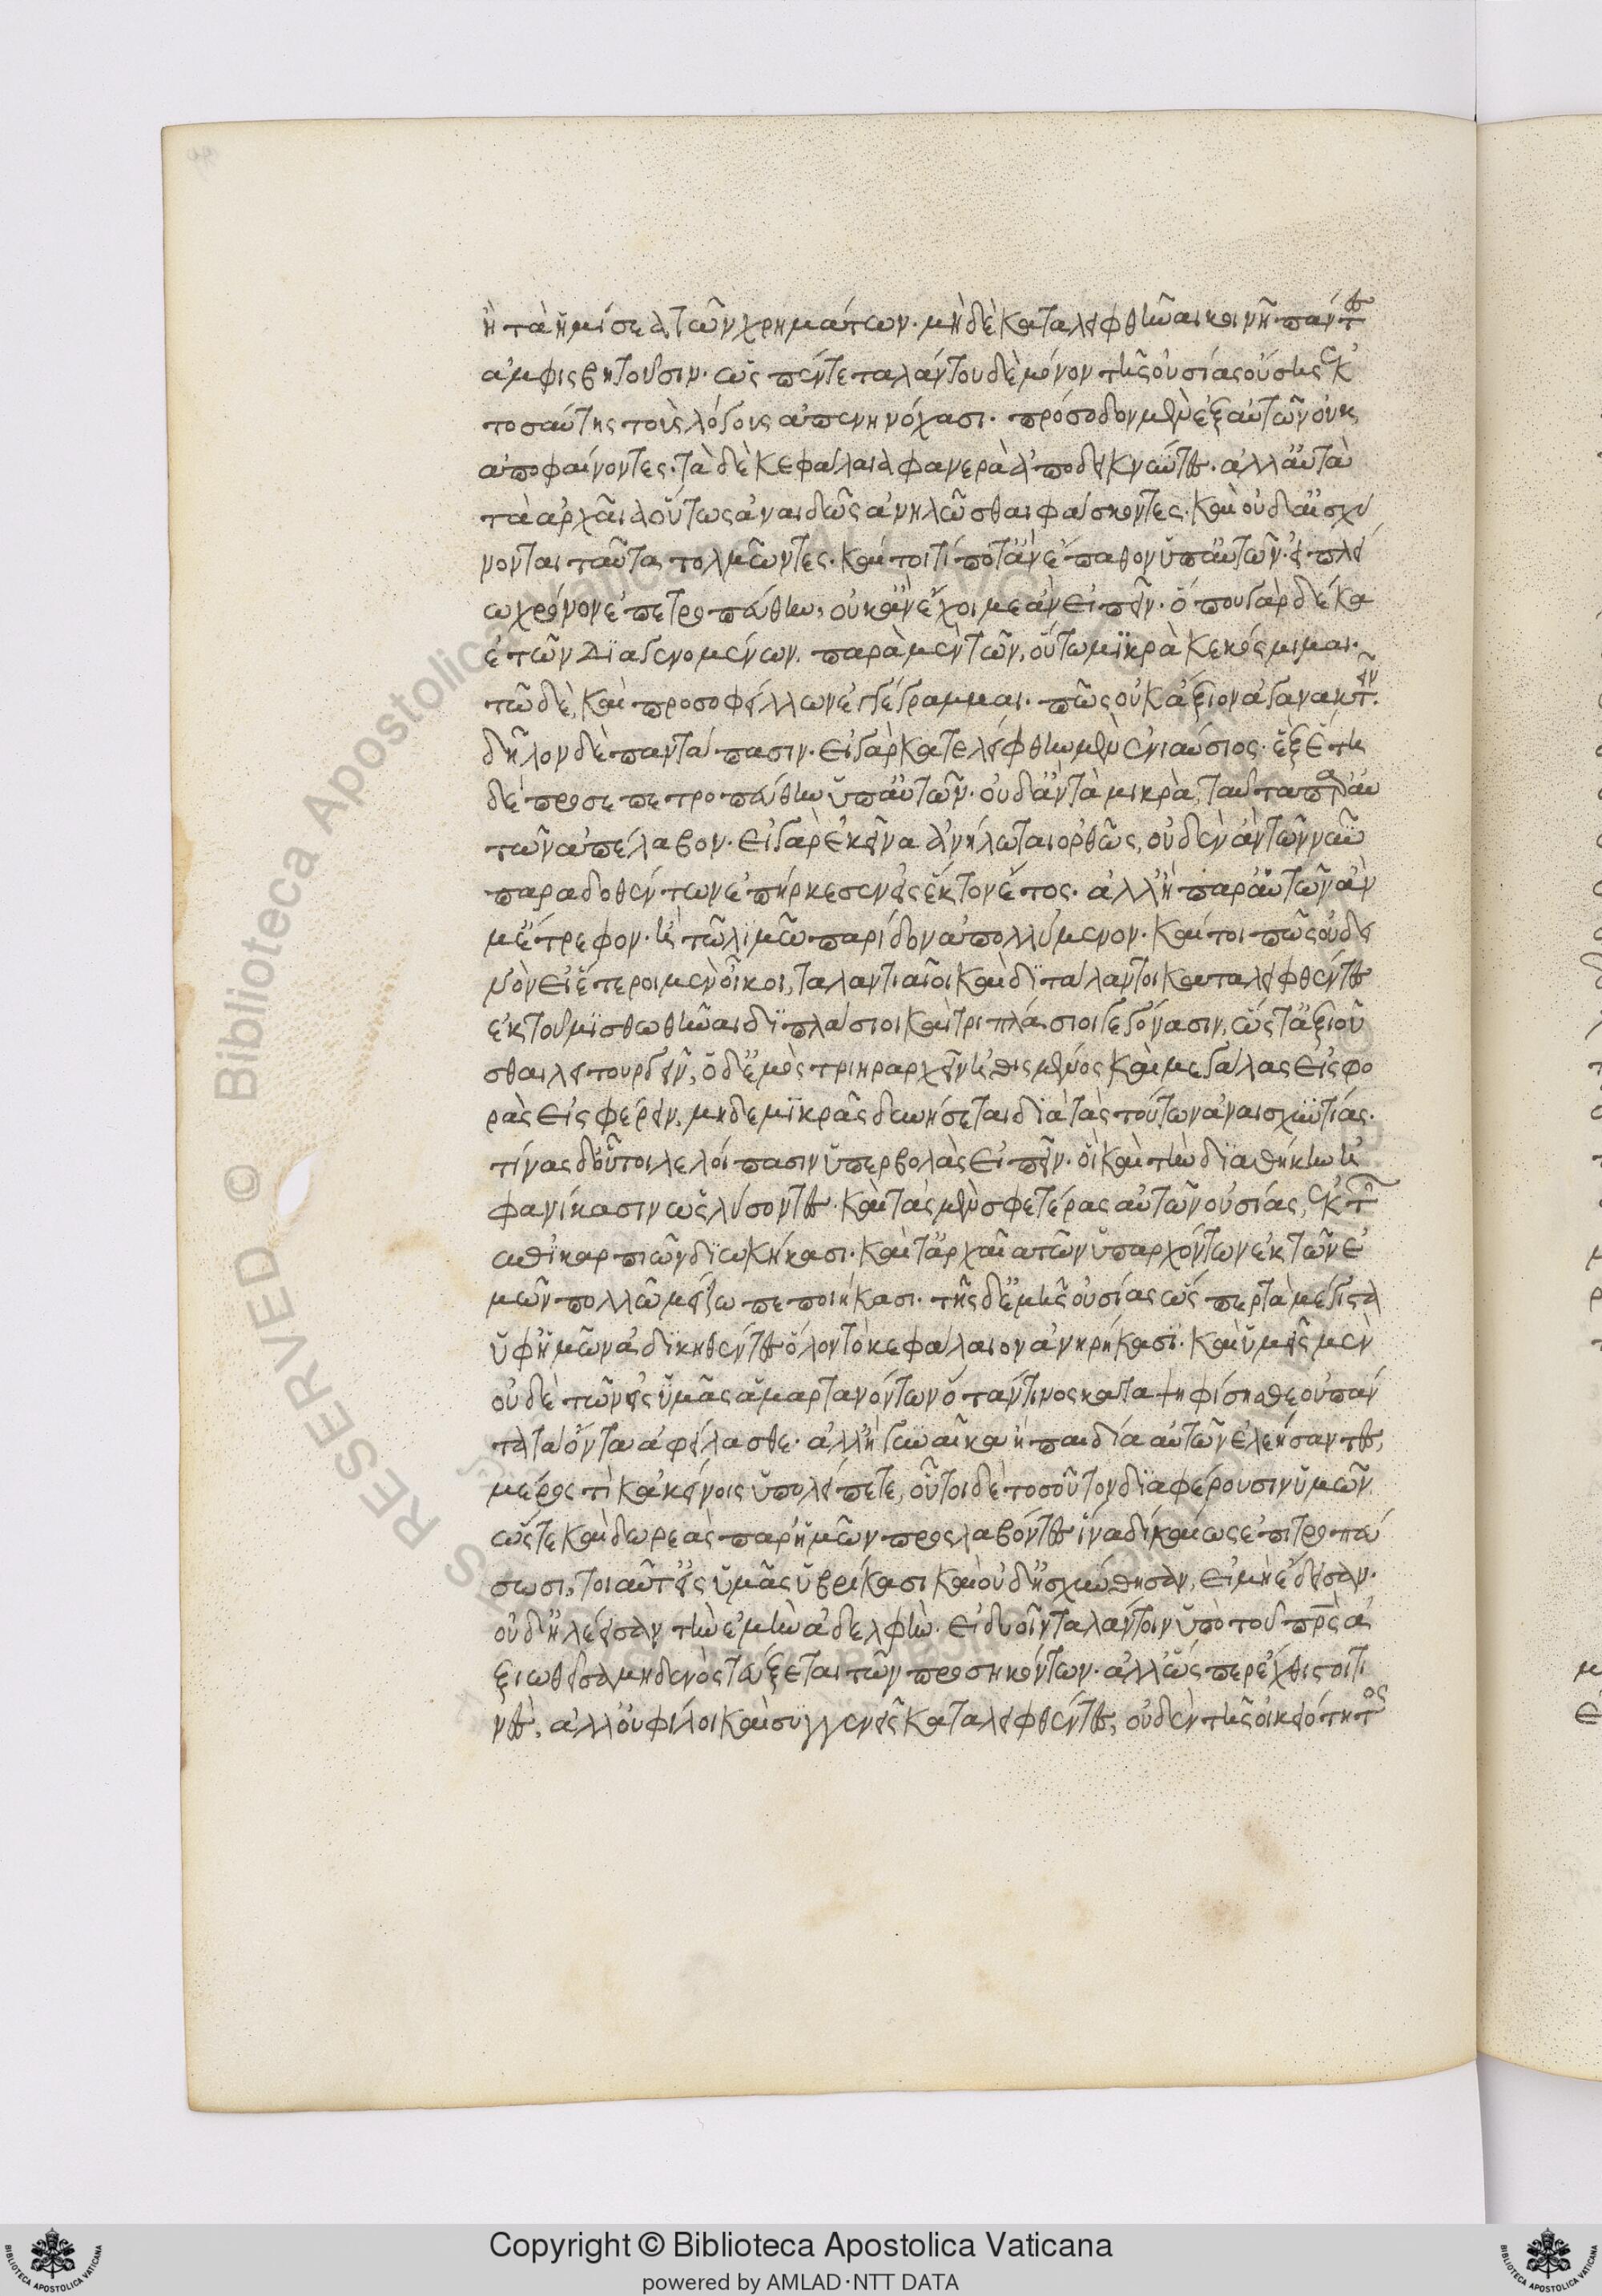 ἢ τὰ ἡμίσεα τῶν χρημάτων. μηδὲ καταλειφθῆναι κοινῇ πάντες
ἀμφισβητοῦσιν. ὡς πέντε ταλάντου δὲ μόνον τῆς οὐσίας οὔσης ἐκ
τοσαύτης τοὺς λόγους ἀπενηνόχασι. πρόσοδον μὲν ἐξ αὐτῶν οὐκ
ἀποφαίνοντες. τὰ δὲ κεφάλαια φανερὰ ἀποδεικνύντες. ἀλλ' αὐτὰ
τὰ ἀρχαῖα οὕτως ἀναιδῶς ἀνηλῶσθαι φάσκοντες. καὶ οὐδ' αἰσχύ
νονται ταῦτα τολμῶντες. καίτοι τί ποτ' ἂν ἔπαθον ὑπ' αὐτῶν. εἰ πλεί
ω χρόνον ἐπετροπεύθην, οὐκ ἂν ἔχοιμε ἂν εἰπεῖν. ὅπου γὰρ δέκα
ἐτῶν διαγενομένων, παρὰ μὲν τῶν, οὕτω μικρὰ κεκόμισμαι.
τῶ δὲ, καὶ προσοφείλων ἐγγέγραμμαι. πῶς οὐκ ἄξιον ἀγανακτεῖν.
δῆλον δὲ παντάπασιν. εἰ γὰρ κατελείφθην μὲν ἐνιαύσιος. ἓξ ἔτη
δὲ προσεπετροπεύθην ὑπ' αὐτῶν. οὐδ' ἂν τὰ μικρὰ ταῦτα παρ' αὐ
τῶν ἀπέλαβον. εἰ γὰρ ἐκεῖνα ἀνήλωται ὀρθῶς, οὐδὲν ἂν τῶν νῦν
παραδοθέντων ἐπήρκεσεν εἰς ἕκτον ἔτος. ἀλλ' ἢ παρ' αὑτῶν ἄν
μ' ἔτρεφον. ἢ τῶ λιμῶ παρίδον ἀπολλύμενον. καίτοι πῶς οὐ δει
νὸν εἰ ἕτεροι μὲν οἶκοι, ταλαντιαῖοι καὶ διτάλαντοι καταλειφθέντες
ἐκ τοῦ μισθωθῆναι διπλάσιοι καὶ τριπλάσιοι γεγόνασιν, ὥστ' ἀξιοῦ
σθαι λειτουργεῖν, ὁ δ' ἐμὸς τριηραρχεῖν εἰθισμένος καὶ μεγάλας εἰσφο
ρὰς εἰσφέρειν, μηδὲ μικρᾶς δυνήσεται διὰ τὰς τούτων ἀναισχυντίας.
τίνας δ' οὗτοι λελοίπασιν ὑπερβολὰς εἰπεῖν. οἳ καὶ τὴν διαθήκην ἠ
φανίκασιν ὡς λήσοντες. καὶ τὰς μὲν σφετέρας αὐτῶν οὐσίας, ἐκ τῶν
ἐπικαρπιῶν διωκήκασι. καὶ τἀρχαῖα τῶν ὑπαρχόντων ἐκ τῶν ἐ
μῶν πολλῶ μείζω πεποιήκασι. τῆς δ' ἐμῆς οὐσίας ὥσπερ τὰ μέγιστα
ὑφ' ἡμῶν ἀδικηθέντες ὅλον τὸ κεφάλαιον ἀνῃρήκασι. καὶ ὑμεῖς μὲν
οὐδὲ τῶν εἰς ὑμᾶς ἁμαρτανόντων ὅταν τινος καταψηφίσησθε οὐ πάν
τα τὰ ὄντα ἀφείλασθε. ἀλλ' ἢ γυναῖκα ἢ παιδία αὐτῶν ἐλεήσαντες,
μέρος τὶ κἀκείνοις ὑπολείπετε, οὗτοι δὲ τοσοῦτον διαφέρουσιν ὑμῶν
ὥστε καὶ δωρεὰς παρ' ἡμῶν προσλαβόντες ἵνα δικαίως ἐπιτροπεύ
σωσι, τοιαῦτ' εἰς ὑμᾶς ὑβρίκασι καὶ οὐδ' ᾐσχύνθησαν, εἰ μὴ ἐλέησαν.
οὐδ' ἠλέησαν τὴν ἐμὴν ἀδελφήν. εἰ δυοῖν ταλάντοιν ὑπὸ τοῦ πατρὸς ἀ
ξιωθεῖσα μηδενὸς τεύξεται τῶν προσηκόντων. ἀλλ' ὥσπερ ἔχθιστοί τι
νες, ἀλλ' οὐ φίλοι καὶ συγγενεῖς καταλειφθέντες, οὐδὲν τῆς οἰκειότητος